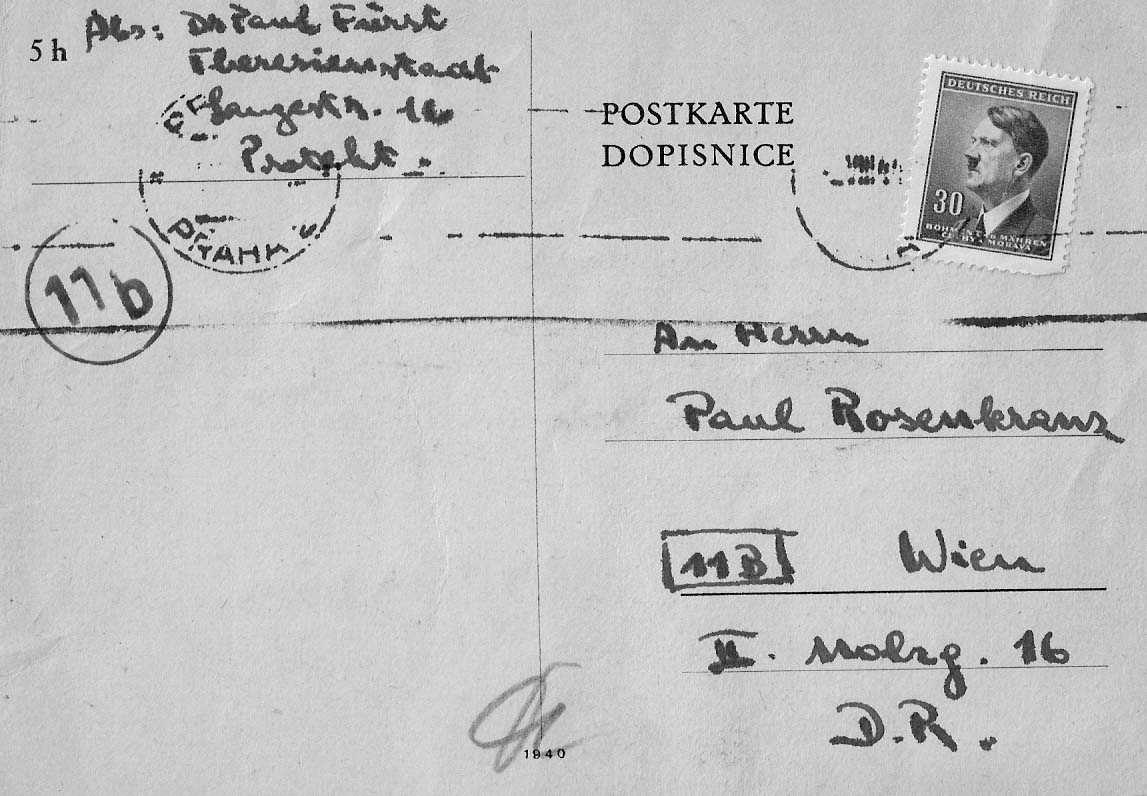 5 h
Abs: Dr Paul Fürst
Theresienstadt
Langestr. 16
Protekt.
PRAHA
11b
POSTKARTE
DOPISNICE
DEUTSCHES REICH
30
BÖHMEN U. MÄHREN
ČECHY A MORAVA
An Herrn
Paul Rosenkranz
11B Wien
II. Holzg. 16
D.R.
1940